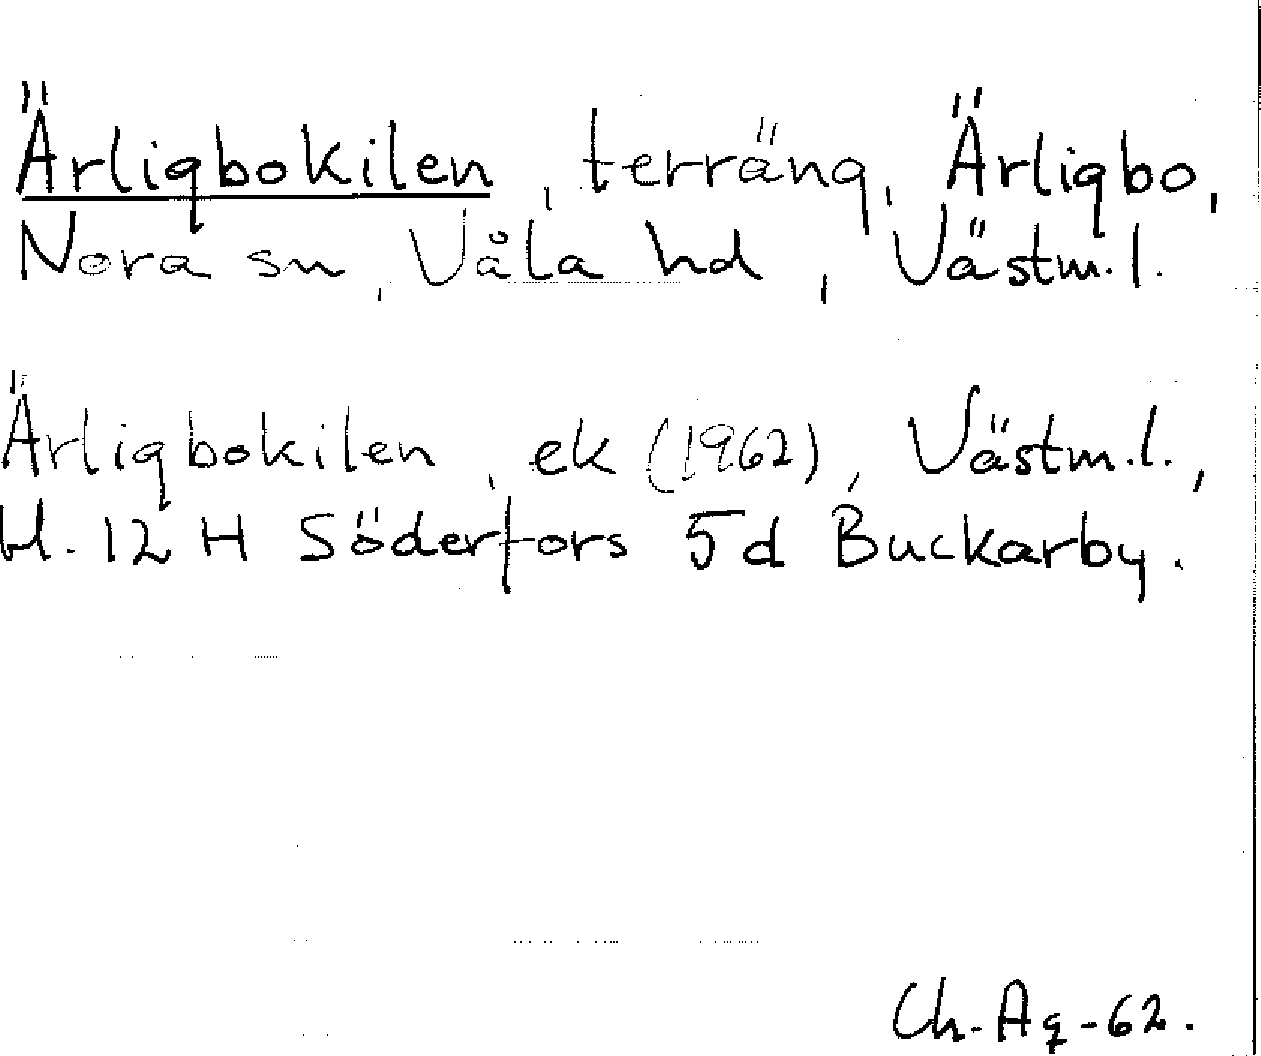 Ärligbokilen, terräng, Ärligbo,
Nora sn, Våla hd, Västm.l.
Ärligbokilen, ek (1962), Västm.l.,
bl. 12 H Söderfors 5d Buckarby.
Ch. Ag - 62.